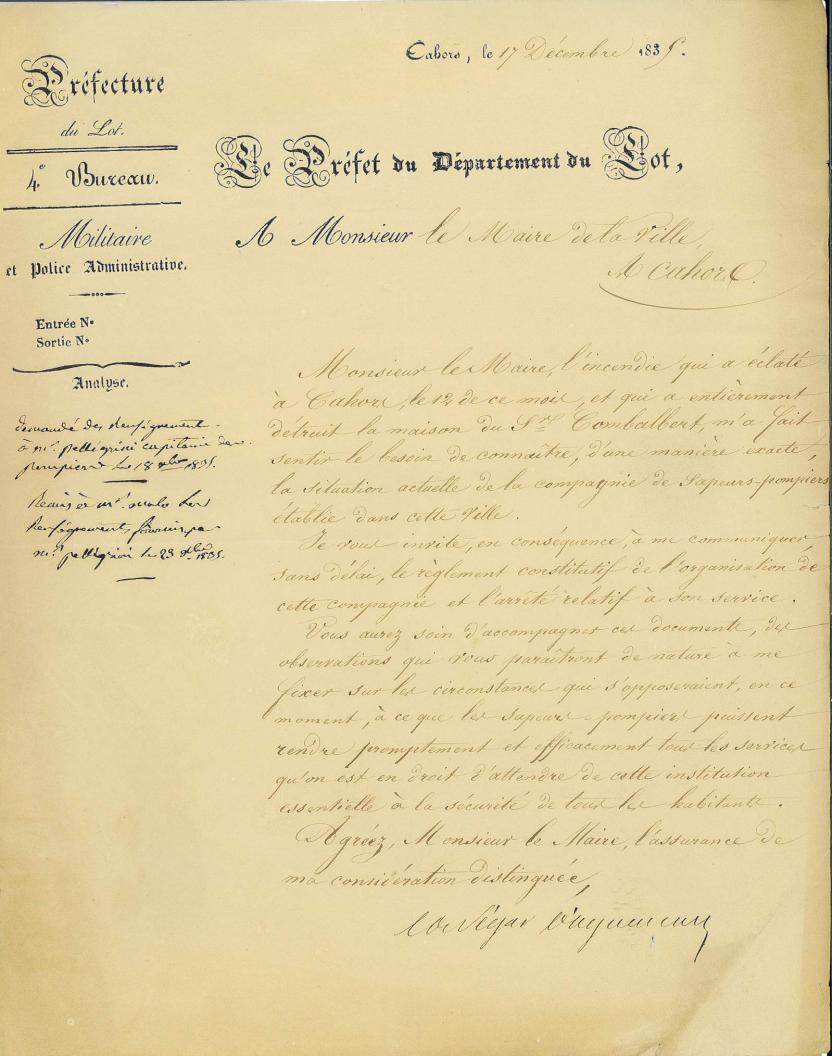 Cahors, le 17 Décembre 1835.
Préfecture
du Lot.
4e Bureau.
Militaire
et Police Administrative.
Entrée No
Sortie No
Analyse.
demandé des renseignements
à mr. pellegrini capitaine des
pompiers le 18 xbre 1835.
mr. malo les
renseignements fournis par
mr. pellegrini le 23 xbre 1835.
Le Préfet du Département du Lot,
A Monsieur le Maire de la Ville,
A Cahors.
Monsieur le Maire, l'incendie qui a éclaté
à Cahors, le 12 de ce mois, et qui a entièrement
détruit la maison du Sr. Combalbert, m'a fait
sentir le besoin de connaître, d'une manière exacte,
la situation actuelle de la compagnie de Sapeurs-pompiers
établie dans cette ville.
Je vous invite, en conséquence, à me communiquer,
sans délai, le règlement constitutif de l'organisation de
cette compagnie et l'arrêté relatif à son service.
Vous aurez soin d'accompagner ces documents, des
observations qui vous paraîtront de nature à me
fixer sur les circonstances qui s'opposeraient, en ce
moment, à ce que les sapeurs-pompiers puissent
rendre promptement et efficacement tous les services
qu'on est en droit d'attendre de cette institution
essentielle à la sécurité de tous les habitants.
Agréez, Monsieur le Maire, l'assurance de
ma considération distinguée,